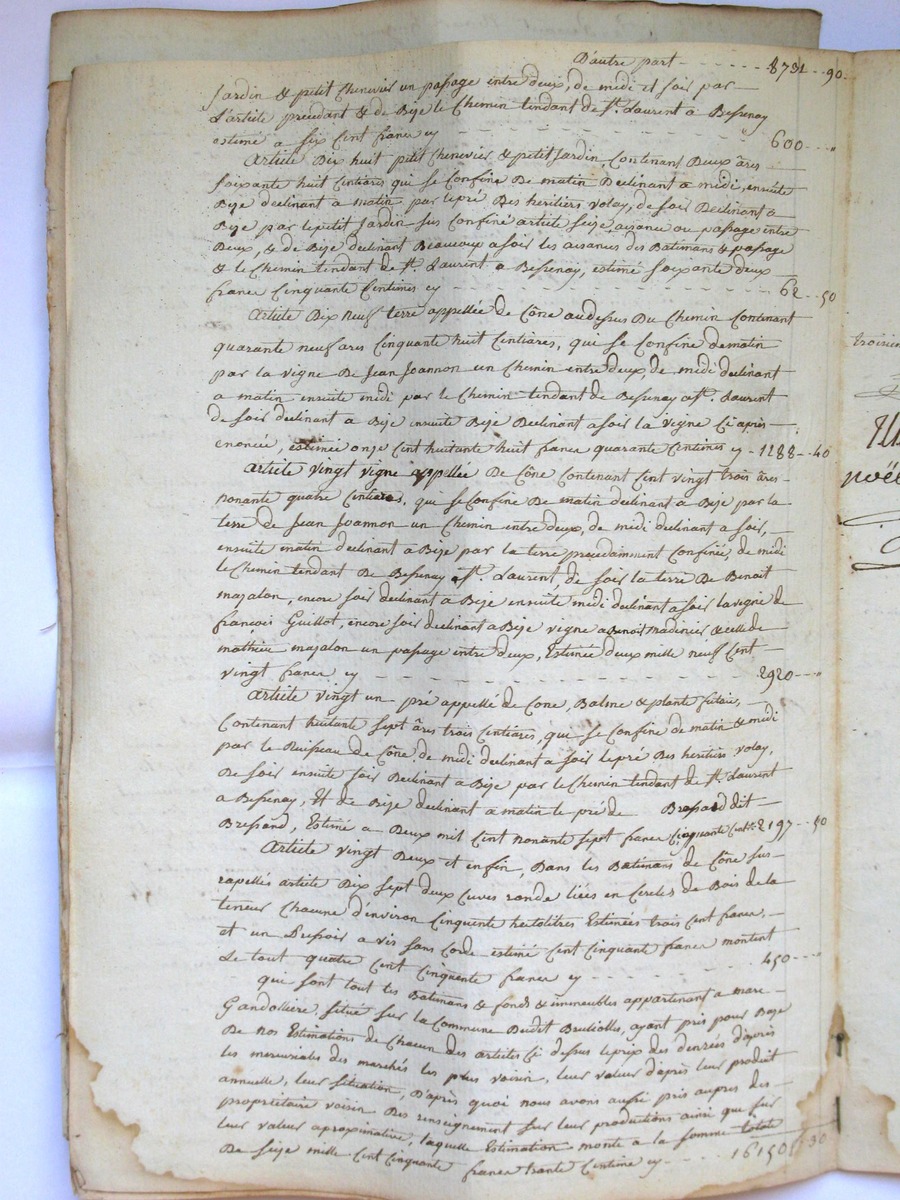 D'autre part - - - - - - 8731 - 90
Jardin & petit Chenevier un passage entre deux, de midi et soir par
L'article précédant & de Bize le Chemin tendant de St. Laurent a Bessenay
estimé a six Cent francs cy - - - - 600 - - "
Article Dix huit petit Chenevier & petit Jardin, Contenant Deux âres
soixante huit Centiares qui se Confine De matin Declinant a midi, ensuite
Bize declinant a matin par le pré Des heritiers volay, de soir Declinant a
Bize par le petit Jardin sus Confiné article seize, aisance ou passage entre
Deux, & de Bize declinant Beaucoup a soir les aisances des Batimans & passage
& le Chemin tendant de St. Laurent a Bessenay, estimé soixante deux
francs Cinquante Centimes cy - - - - 62 - 50
Article Dix neuf terre appellée de Cône audessus Du Chemin Contenant
quarante neuf ares Cinquante huit Centiares, qui se Confine de matin
par la vigne De Jean Joannon un Chemin entre deux, de midi declinant
a matin ensuite midi par le Chemin tendant de Bessenay a St. Laurent
de soir declinant a Bize ensuite Bize Declinant a soir la vigne Ci après
enoncée, estimée onze Cent huitante huit francs quarante Centimes cy - 1188 - 40
Article vingt vigne appellée De Cône Contenant Cent vingt trois âres
nonante quatre Centiares, qui se Confine De matin declinant a Bize par la
terre de Jean Joannon un Chemin entre deux, de midi declinant a soir,
ensuite matin declinant a Bize par la terre precedamment Confinée, de midi
le Chemin tendant De Bessenay a St. Laurent, de soir la terre De Benoit
mazalon, encore soir declinant a Bize ensuite midi declinant a soir la vigne de
françois Guillot, encore soir declinant a Bize vigne a Benoit madinier & celle de
mathieu mazalon un passage entre deux, Estimée deux mille neuf Cent
vingt francs cy - - - - 2920 - - "
Article vingt un pré appellé de Cone, Balme & plante futaie,
Contenant huitante sept âres trois Centiares, qui se Confine de matin & midi
par le Ruisseau de Cône, de midi declinant a soir le pré Des heritiers volay,
De soir ensuite soir Declinant a Bize par le Chemin tendant de St. Laurent
a Bessenay, Et de Bize declinant a matin le pré de Bressand dit
Bressand, Estimé a Deux mil Cent nonante sept francs Cinquante Cent.s 2197 - 50
Article vingt Deux et enfin, Dans les Batimans de Cône sus
rapellés article Dix sept deux Cuves ronde liées en Cercles de Bois de la
teneur Chacune d'environ Cinquente hectolitres Estimées trois Cent francs,
et un Pressoir a vis sans Corde estimé Cent Cinquante francs montent
Le tout quatre Cent Cinquente francs cy - - - - 450 - - "
qui sont tout les Batimans & fonds & immeubles appartenant a marc
Gandolliere, situé sur la Commune Dudit Brullioles, ayant pris pour Baze
De nos Estimations de Chacun des articles Ci dessus le prix des denrées d'après
les mercuriales des marchés les plus voisin, leur valeur d'après leur produit
annuelle, leur situation, D'après quoi nous avons aussi pris aupres des
propriétaire voisin Des renseignement sur leur productions ainsi que sur
leur valeur aproximative, laquelle Estimation monte a la somme totale
De seize mille Cent Cinquante francs trante Centime cy - - - - 16150 - 30